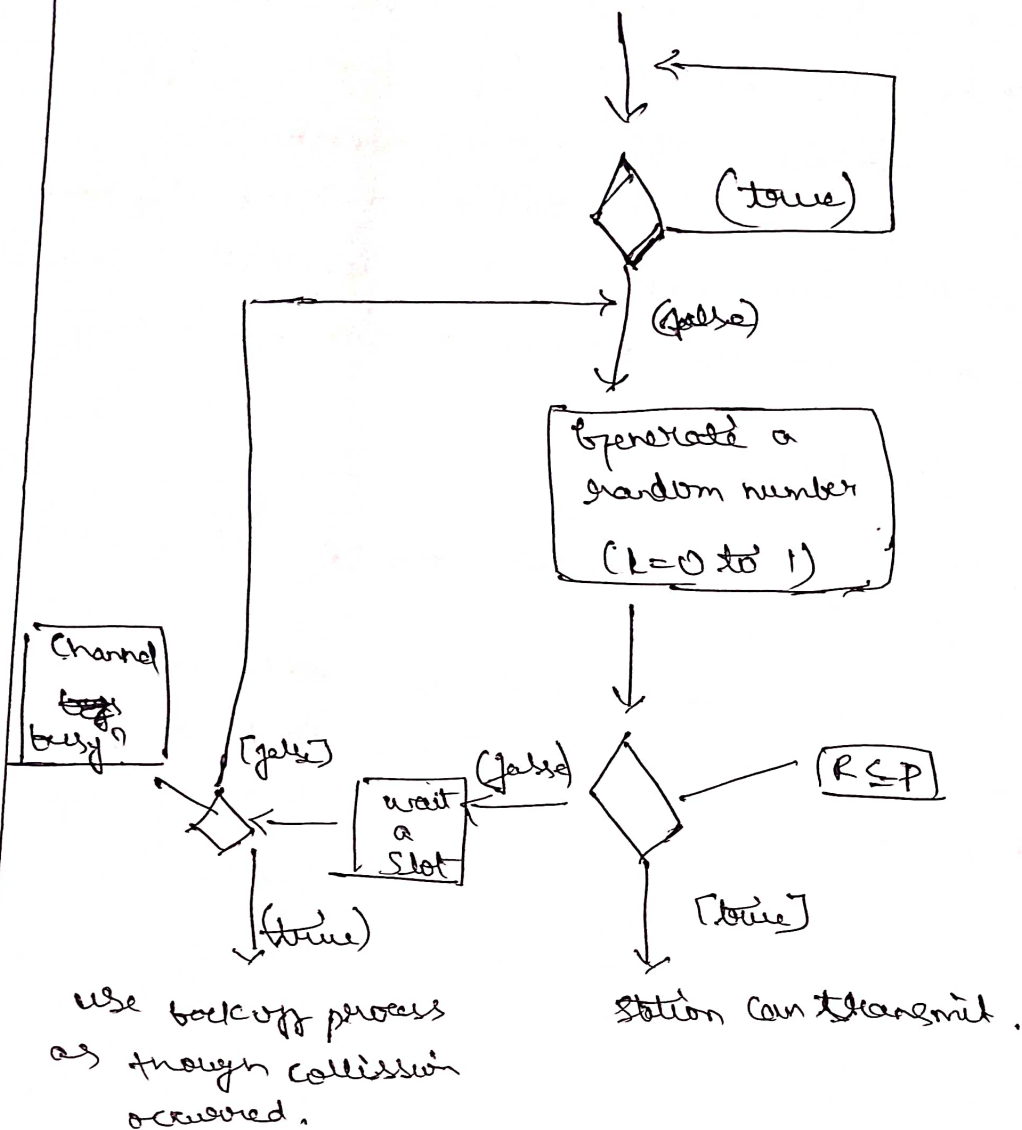 (true)
(false)
Generate a
random number
(R=0 to 1)
Channel
busy?
[false]
(false)
wait
a
Slot
R ≤ P
(true)
[true]
use backoff process
as though collission
occurred.
Station can transmit.